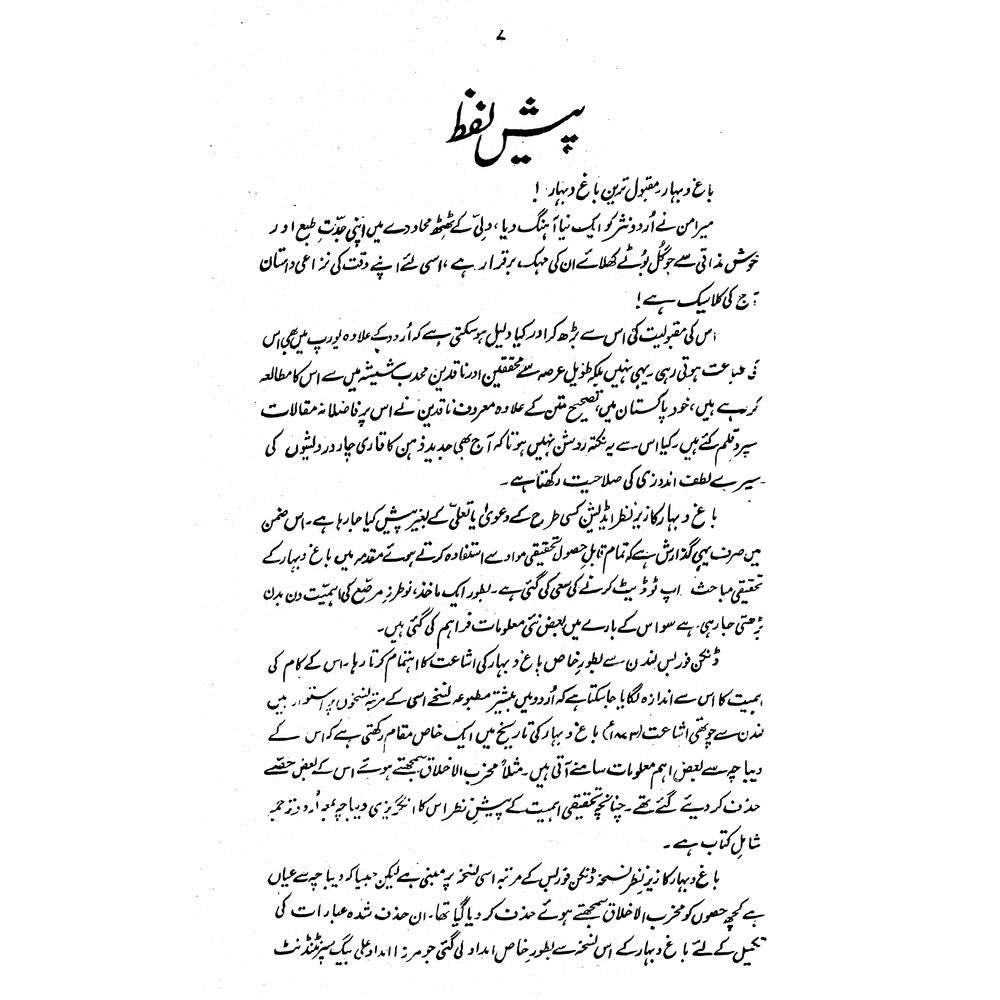 ۷
پیش لفظ
باغ و بہار۔ مقبول ترین باغ و بہار !
میر امن نے اُردو نثر کو ایک نیا آہنگ دیا، دلّی کے ٹھٹھ محاورے میں اپنی جدّتِ طبع اور
خوش مذاقی سے جو گُل بُوٹے کھلائے ان کی مہک برقرار ہے، اسی لئے اپنے وقت کی نزاعی داستان
آج کی کلاسیک ہے!
اس کی مقبولیت کی اس سے بڑھ کر اور کیا دلیل ہو سکتی ہے کہ اُردو کے علاوہ یورپ میں بھی اس
کی طباعت ہوتی رہی۔ یہی نہیں بلکہ طویل عرصہ سے محققین اور ناقدین محدب شیشہ میں سے اس کا مطالعہ
کر رہے ہیں، خود پاکستان میں، تصحیحِ متن کے علاوہ معروف ناقدین نے اس پر فاضلانہ مقالات
سپردِ قلم کئے ہیں۔ کیا اس سے یہ نکتہ روشن نہیں ہوتا کہ آج بھی جدید ذہن کا قاری چار درویشوں کی
سیر سے لطف اندوزی کی صلاحیت رکھتا ہے۔
باغ و بہار کا زیرِ نظر ایڈیشن کسی طرح کے دعویٰ یا تعلّی کے بغیر پیش کیا جا رہا ہے۔ اس ضمن
میں صرف یہی گذارش ہے کہ تمام قابلِ حصول تحقیقی مواد سے استفادہ کرتے ہوئے مقدمہ میں باغ و بہار کے
تحقیقی مباحث اپ ٹو ڈیٹ کرنے کی سعی کی گئی ہے۔ بطور ایک ماخذ، نو طرزِ مرصّع کی اہمیت دن بدن
بڑھتی جا رہی ہے سو اس کے بارے میں بعض نئی معلومات فراہم کی گئی ہیں۔
ڈنکن فوربس لندن سے بطورِ خاص باغ و بہار کی اشاعت کا اہتمام کرتا رہا۔ اس کے کام کی
اہمیت کا اس سے اندازہ لگایا جا سکتا ہے کہ اُردو میں بیشتر مطبوعہ نسخے اسی کے مرتبہ نسخوں پر استوار ہیں
لندن سے چوتھی اشاعت (۱۸۷۳ء) باغ و بہار کی تاریخ میں ایک خاص مقام رکھتی ہے کہ اس کے
دیباچہ سے بعض اہم معلومات سامنے آتی ہیں۔ مثلاً مخرب الاخلاق سمجھتے ہوئے اس کے بعض حصّے
حذف کر دیئے گئے تھے۔ چنانچہ تحقیقی اہمیت کے پیشِ نظر اس کا انگریزی دیباچہ بمعہ اُردو ترجمہ
شاملِ کتاب ہے۔
باغ و بہار کا زیرِ نظر نسخہ ڈنکن فوربس کے مرتبہ اسی نسخہ پر مبنی ہے لیکن جیسا کہ دیباچہ سے عیاں
ہے کچھ حصوں کو مخرب الاخلاق سمجھتے ہوئے حذف کر دیا گیا تھا۔ ان حذف شدہ عبارات کی
تکمیل کے لئے باغ و بہار کے اس نسخہ سے بطورِ خاص امداد لی گئی جو مرزا امداد علی بیگ سپرنٹنڈنٹ